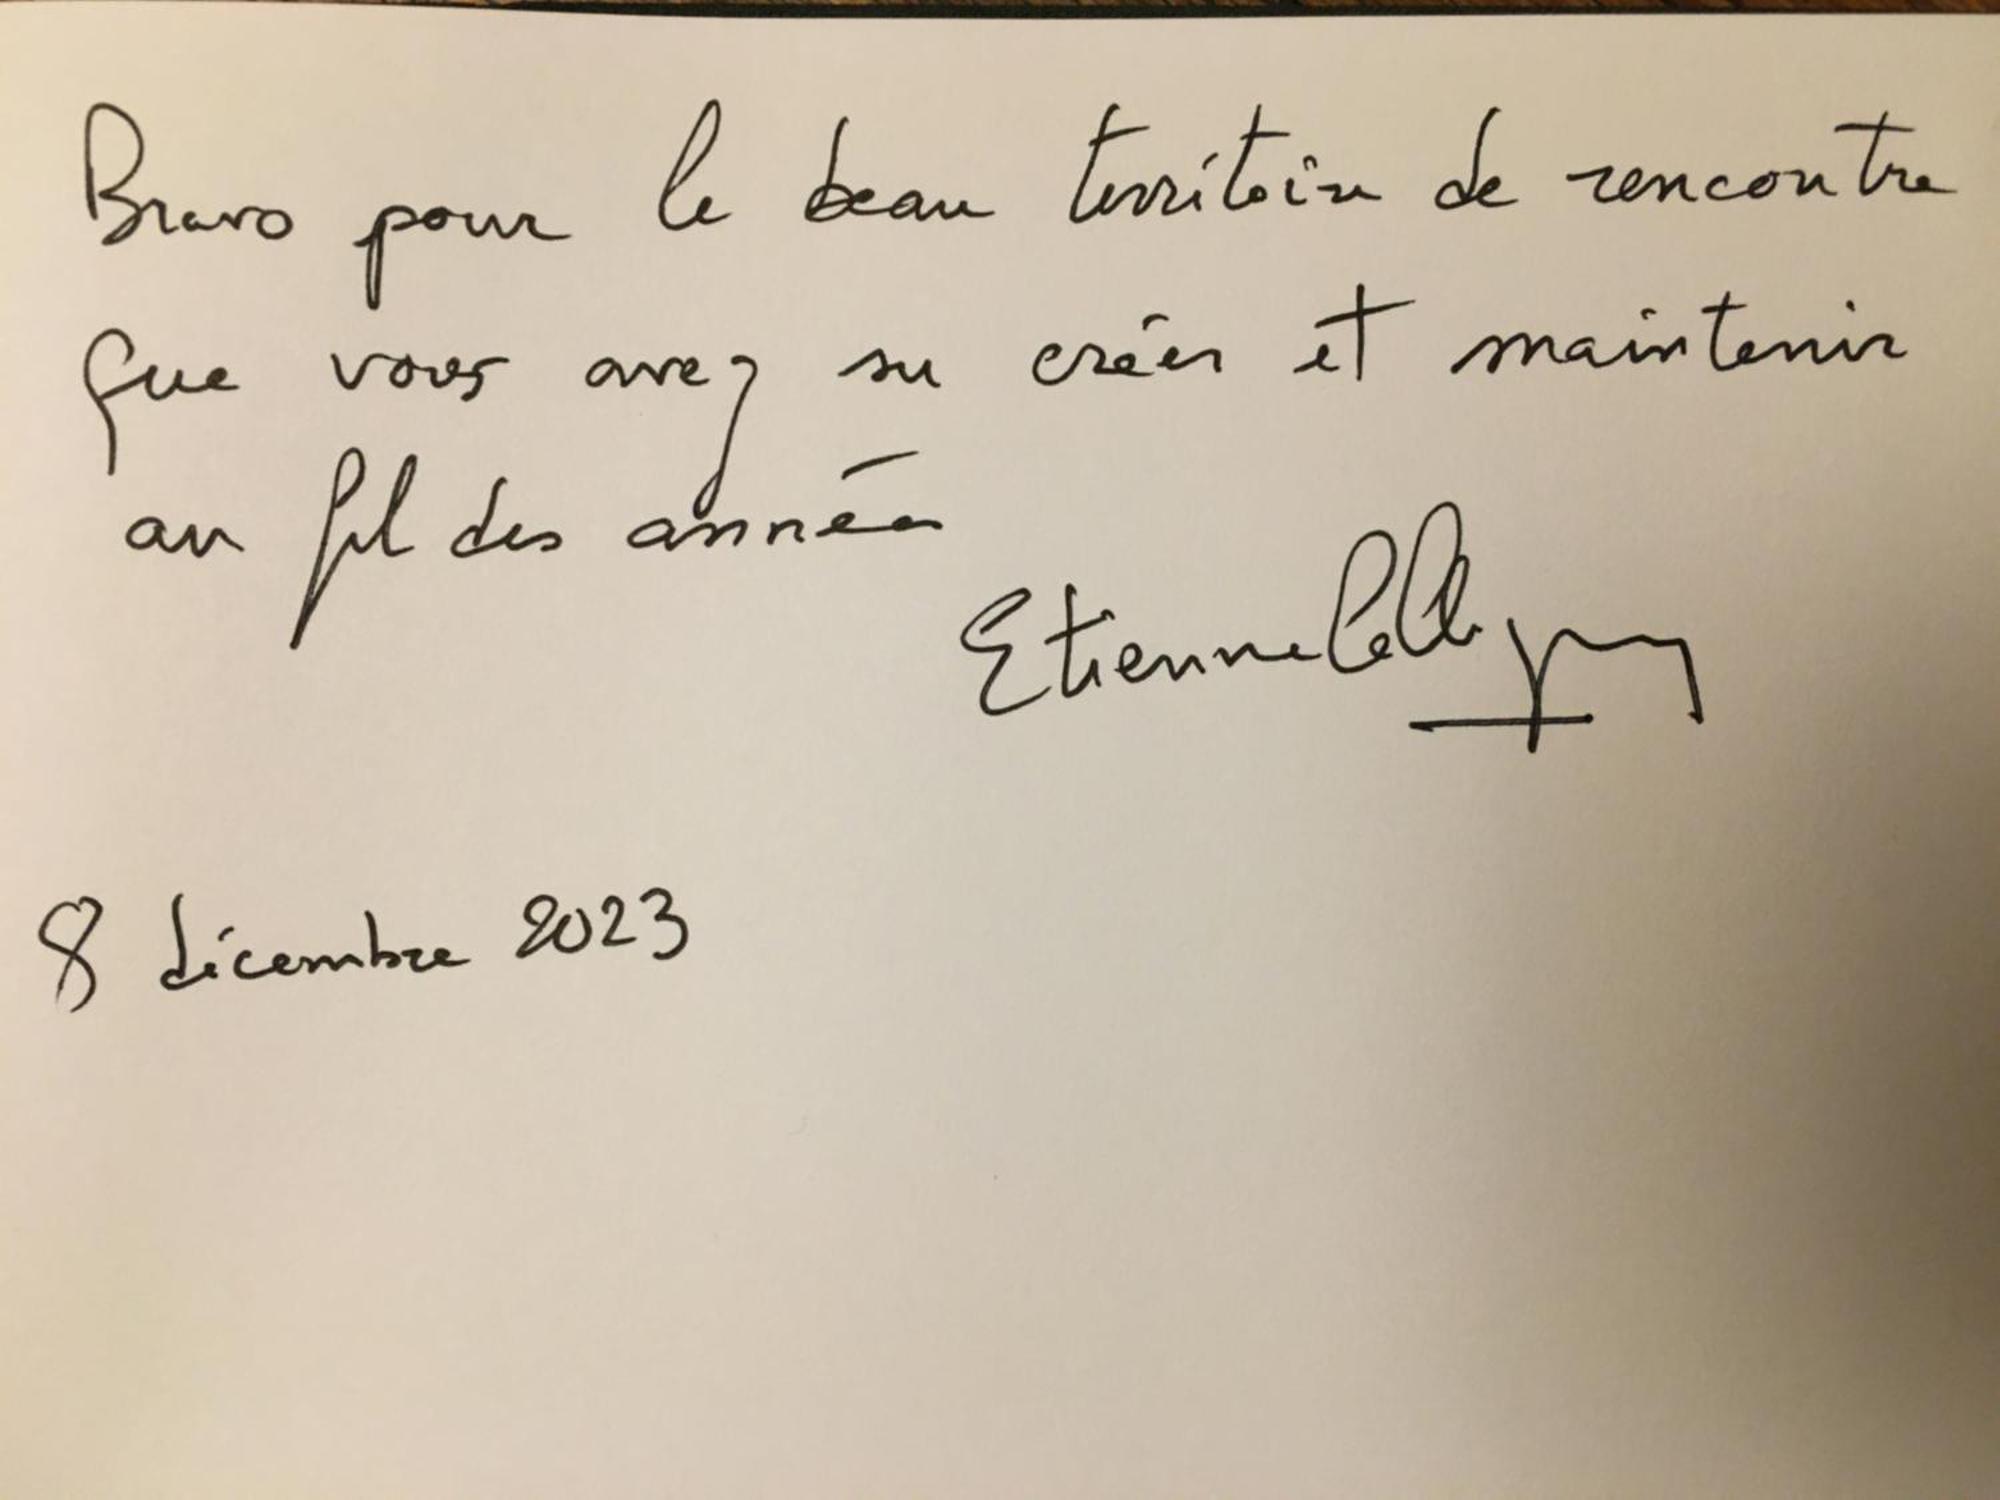 Bravo pour le beau territoire de rencontre
que vous avez su créer et maintenir
au fil des années
Etienne
8 décembre 2023